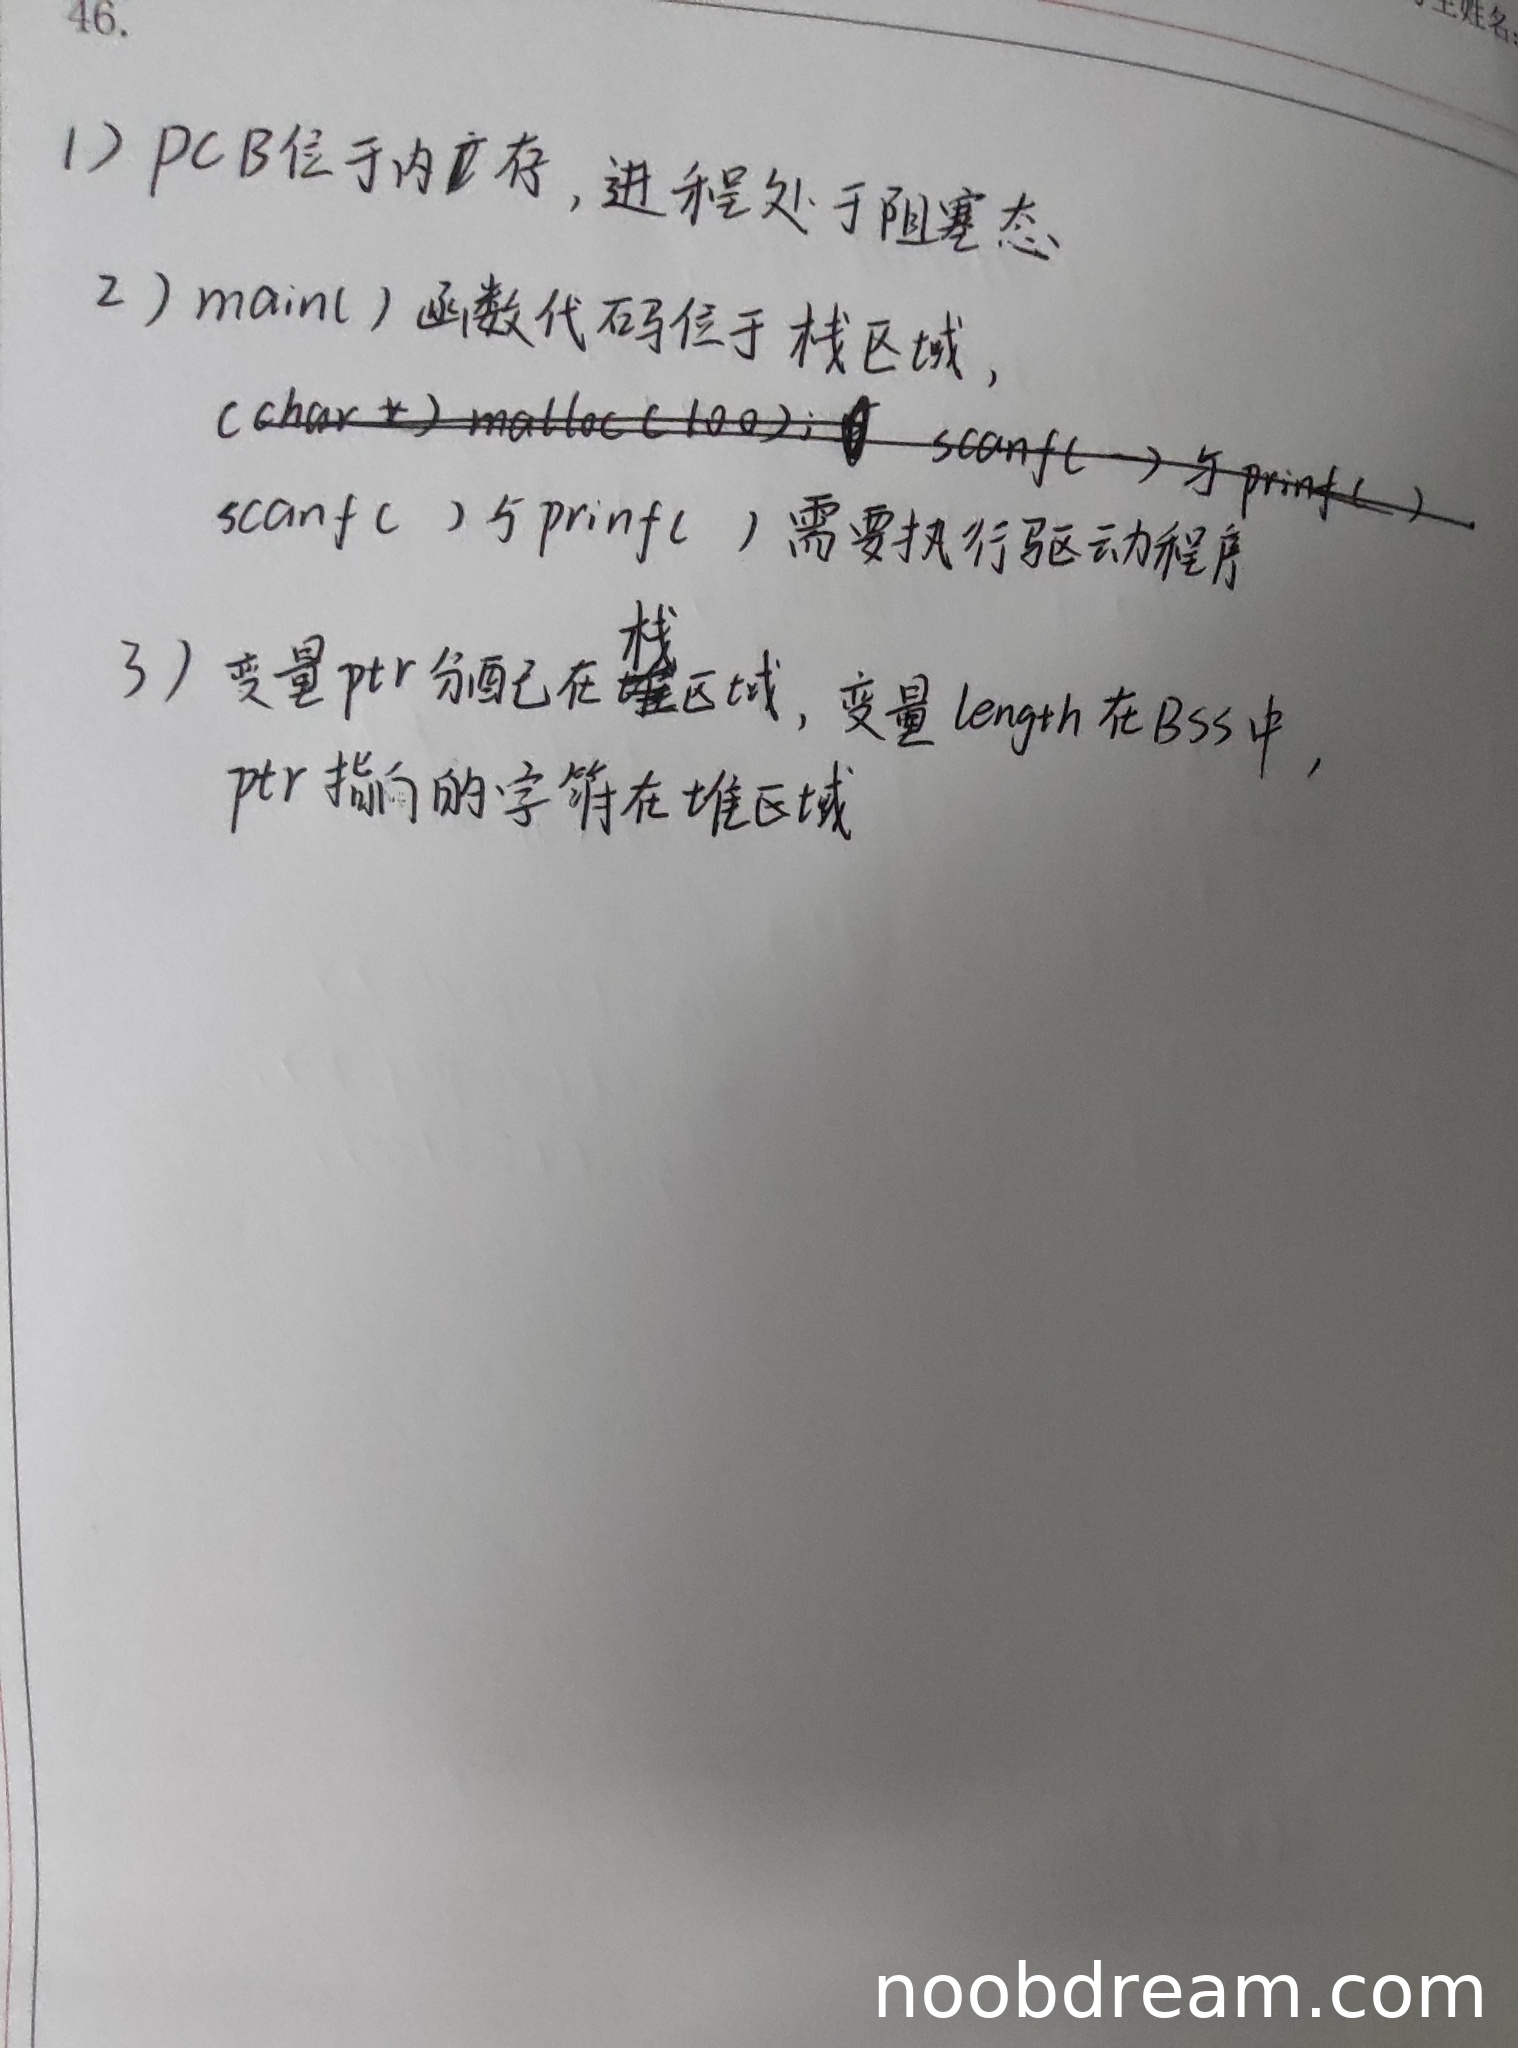 46.
考生姓名:
1) PCB位于内存,进程处于阻塞态
2) main( ) 函数代码位于栈区域,
(char *) malloc(100); scanf( ) 与 prinf( )
scanf( ) 与 prinf( ) 需要执行驱动程序
栈
3) 变量ptr分配在堆区域,变量length在BSS中,
ptr指向的字符在堆区域
noobdream.com